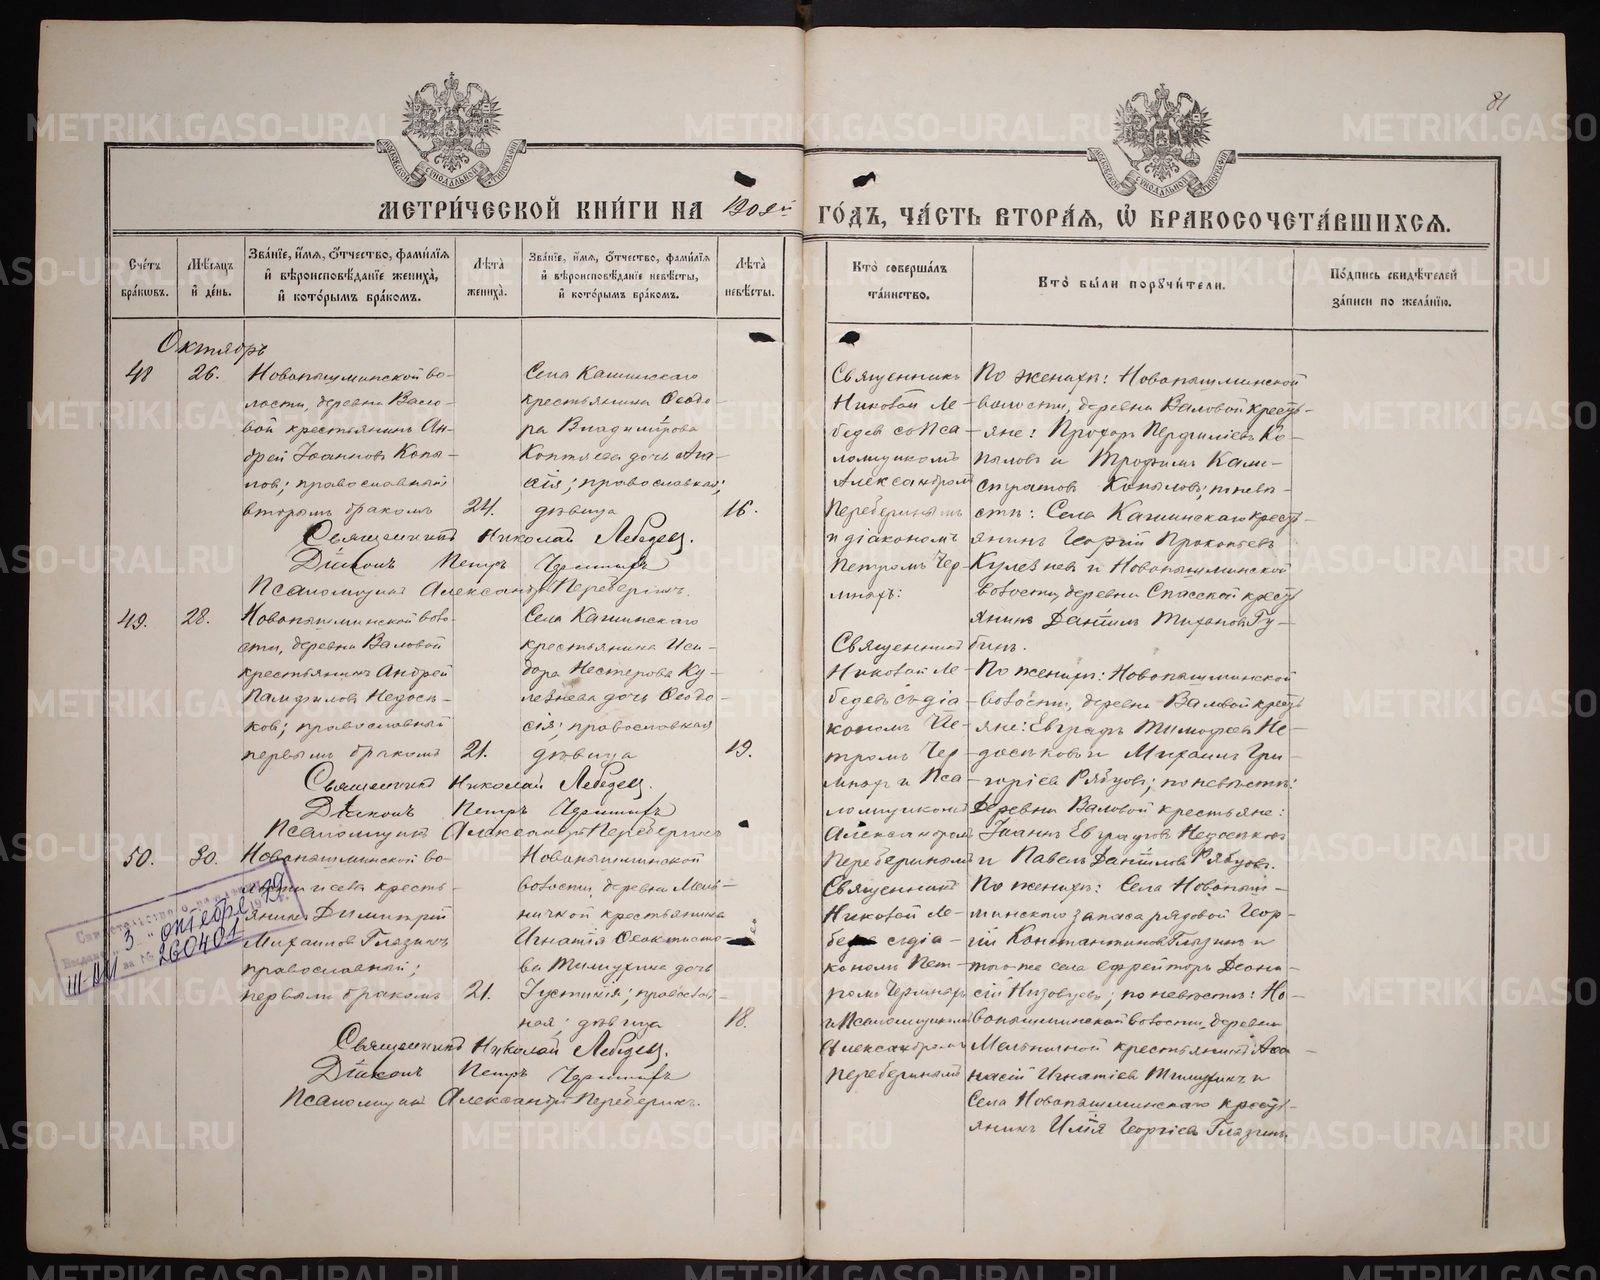 81
МОСКОВСКОЙ СѴНОДАЛЬНОЙ ТИПОГРАФІИ
МОСКОВСКОЙ СѴНОДАЛЬНОЙ ТИПОГРАФІИ
МЕТРИ́ЧЕСКОЙ КНИ́ГИ НА ГО́ДЪ, ЧА́СТЬ ВТОРА́Я, Ѡ҆ БРАКОСОЧЕТА́ВШИХСЯ.
Сче́тъ бра́ковъ.
Мѣ́сяцъ и҆ де́нь.
Зва́нїе, и҆́мя, ѻ҆́тчество, фами́лїя и҆ вѣроисповѣ́данїе жениха̀, и҆ кото́рымъ бра́комъ.
Лѣ́та жениха̀.
Зва́нїе, и҆́мя, ѻ҆́тчество, фами́лїя и҆ вѣроисповѣ́данїе невѣ́сты, и҆ кото́рымъ бра́комъ.
Лѣ́та невѣ́сты.
Кто̀ соверша́лъ та́инство.
Кто̀ бы́ли порꙋчи́тели.
По́дпись свидѣ́телей за́писи по жела́нїю.
Октябрь
48
26.
Новопышминской во-
лости, деревни Вало-
вой крестьянинъ Ан-
дрей Іоанновъ Копы-
ловъ; православный
вторымъ бракомъ
24.
Села Кашинскаго
крестьянина Ѳеодо-
ра Владимірова
Коптяева дочь
православная;
дѣвица
16.
Священникъ
Николай Ле-
бедевъ съ Пса-
ломщикомъ
Александромъ
Переберинымъ
и діакономъ
Петромъ Чер-
По женихѣ: Новопышминской
волости, деревни Валовой кресть-
яне: Прохоръ Перфиліевъ Ко-
пыловъ и Трофимъ Кали-
стратовъ Копыловъ; по невѣ-
стѣ: Села Кашинскаго кресть-
янинъ Георгій Прокопьевъ
Кулезневъ и Новопышминской
волости, деревни Спасской кресть
янинъ Даніилъ Тихановъ Гу-
бинъ.
Священникъ Николай Лебедевъ.
Діаконъ Петръ
Псаломщикъ Александръ Переберинъ.
49.
28.
Новопышминской воло-
сти, деревни Валовой
крестьянинъ Андрей
Памфиловъ Недось-
ковъ; православный
первымъ бракомъ
21.
Села Кашинскаго
крестьянина Иси-
дора Нестерова Ку-
лезнева дочь Ѳеодо-
сія; православная
дѣвица
19.
Священникъ
Николай Ле-
бедевъ съ діа-
кономъ Пе-
тромъ Чер-
и Пса-
ломщикомъ
Александромъ
Переберинымъ
По женихѣ: Новопышминской
волости, деревни Валовой кресть
яне: Евграфъ Тимофеевъ Не-
доськовъ и Михаилъ Гри-
горіевъ Рябцовъ; по невѣстѣ:
Деревни Валовой крестьяне:
Іоаннъ Евграфовъ Недоськовъ
и Павелъ Даніиловъ Рябцовъ.
Священникъ Николай Лебедевъ.
Діаконъ Петръ
Псаломщикъ Александръ Переберинъ
50.
30.
Новопышминской во-
лости и села кресть-
янинъ Димитрій
Михаиловъ Глазинъ
православный;
первымъ бракомъ
21.
Новопышминской
волости, деревни Мель-
ничной крестьянина
Игнатія Ѳеоктисто-
ва Тимухина дочь
Іустинія; православ-
ная; дѣвица
18.
Священникъ
Николай Ле-
съ діа-
кономъ Пет-
ромъ
и Псаломщикомъ
Александромъ
Переберинымъ
По женихѣ: Села Новопыш-
минскаго запаса рядовой Геор-
гій Константиновъ Глазинъ и
того-же села ефрейторъ Діони-
сій Низовцевъ; по невѣстѣ: Но-
вопышминской волости, деревни
Мельничной крестьянинъ Аѳа-
насій Игнатіевъ Тимухинъ и
Села Новопышминскаго кресть-
янинъ Илія Георгіевъ Глазинъ.
Священникъ Николай Лебедевъ.
Діаконъ Петръ
Псаломщикъ Александръ Переберинъ.
3 октября
III-АИ за № 260401
METRIKI.GASO-URAL.RU